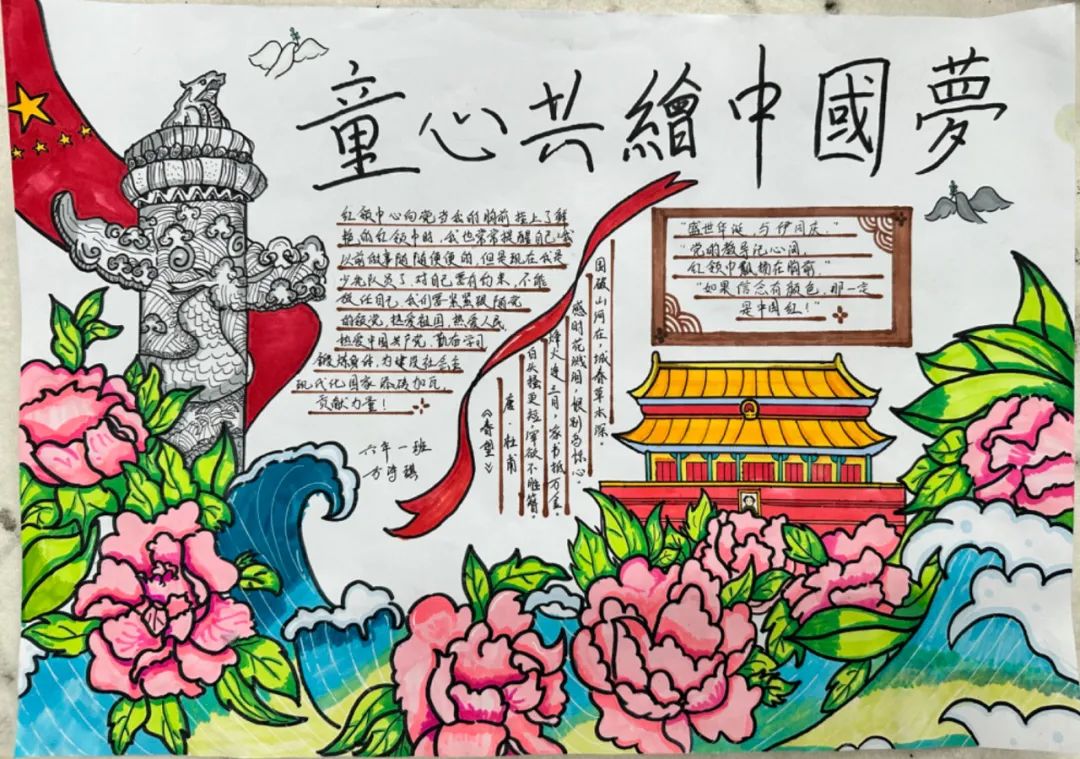 童心共繪中國夢
红领巾心向党当我的胸前挂上了鲜
艳的红领巾时,我也常常提醒自己,我
以前做事随随便便的,但是现在我是
少先队员了,对自己要有约束,不能
放任自己,我们要紧紧跟随党
的领党,热爱祖国,热爱人民,
热爱中国共产党,勤奋学习
锻炼身体,为建设社会主
现代化国家添砖加瓦,
贡献力量!
六年一班
国破山河在,城春草木深
感时花溅泪,恨别鸟惊心。
烽火连三月,家书抵万金。
白头搔更短,浑欲不胜簪。
唐·杜甫
《春望》
“盛世华诞,与伊同庆。”
“党的教导记心间,
红领巾飘扬在胸前。”
“如果信念有颜色,那一定
是中国红!”